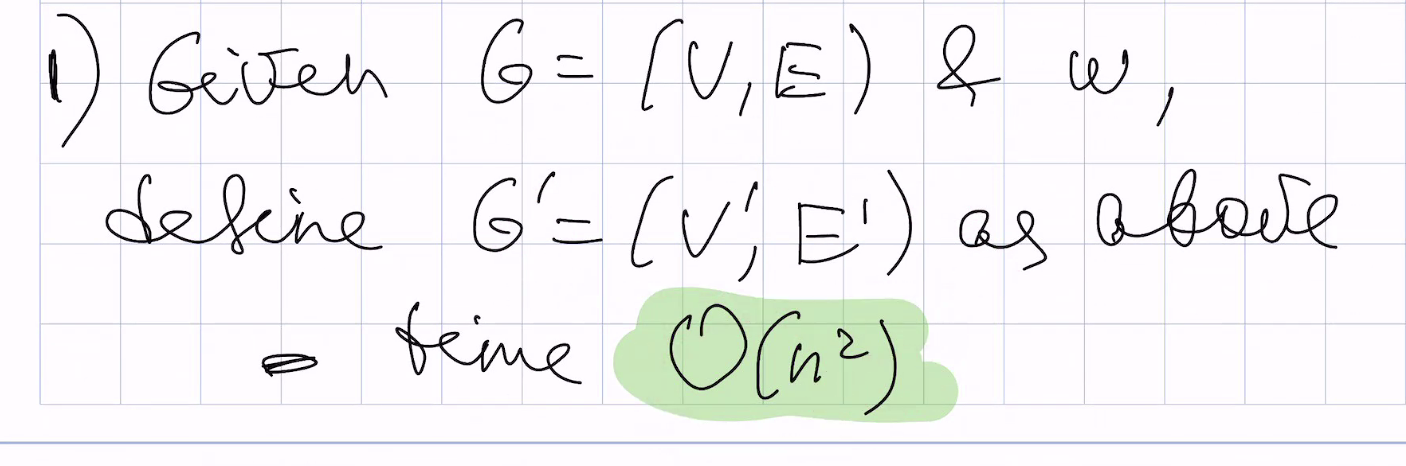 1) Given G = (V, E) & w,
define G' = (V', E') as above
- time O(n²)